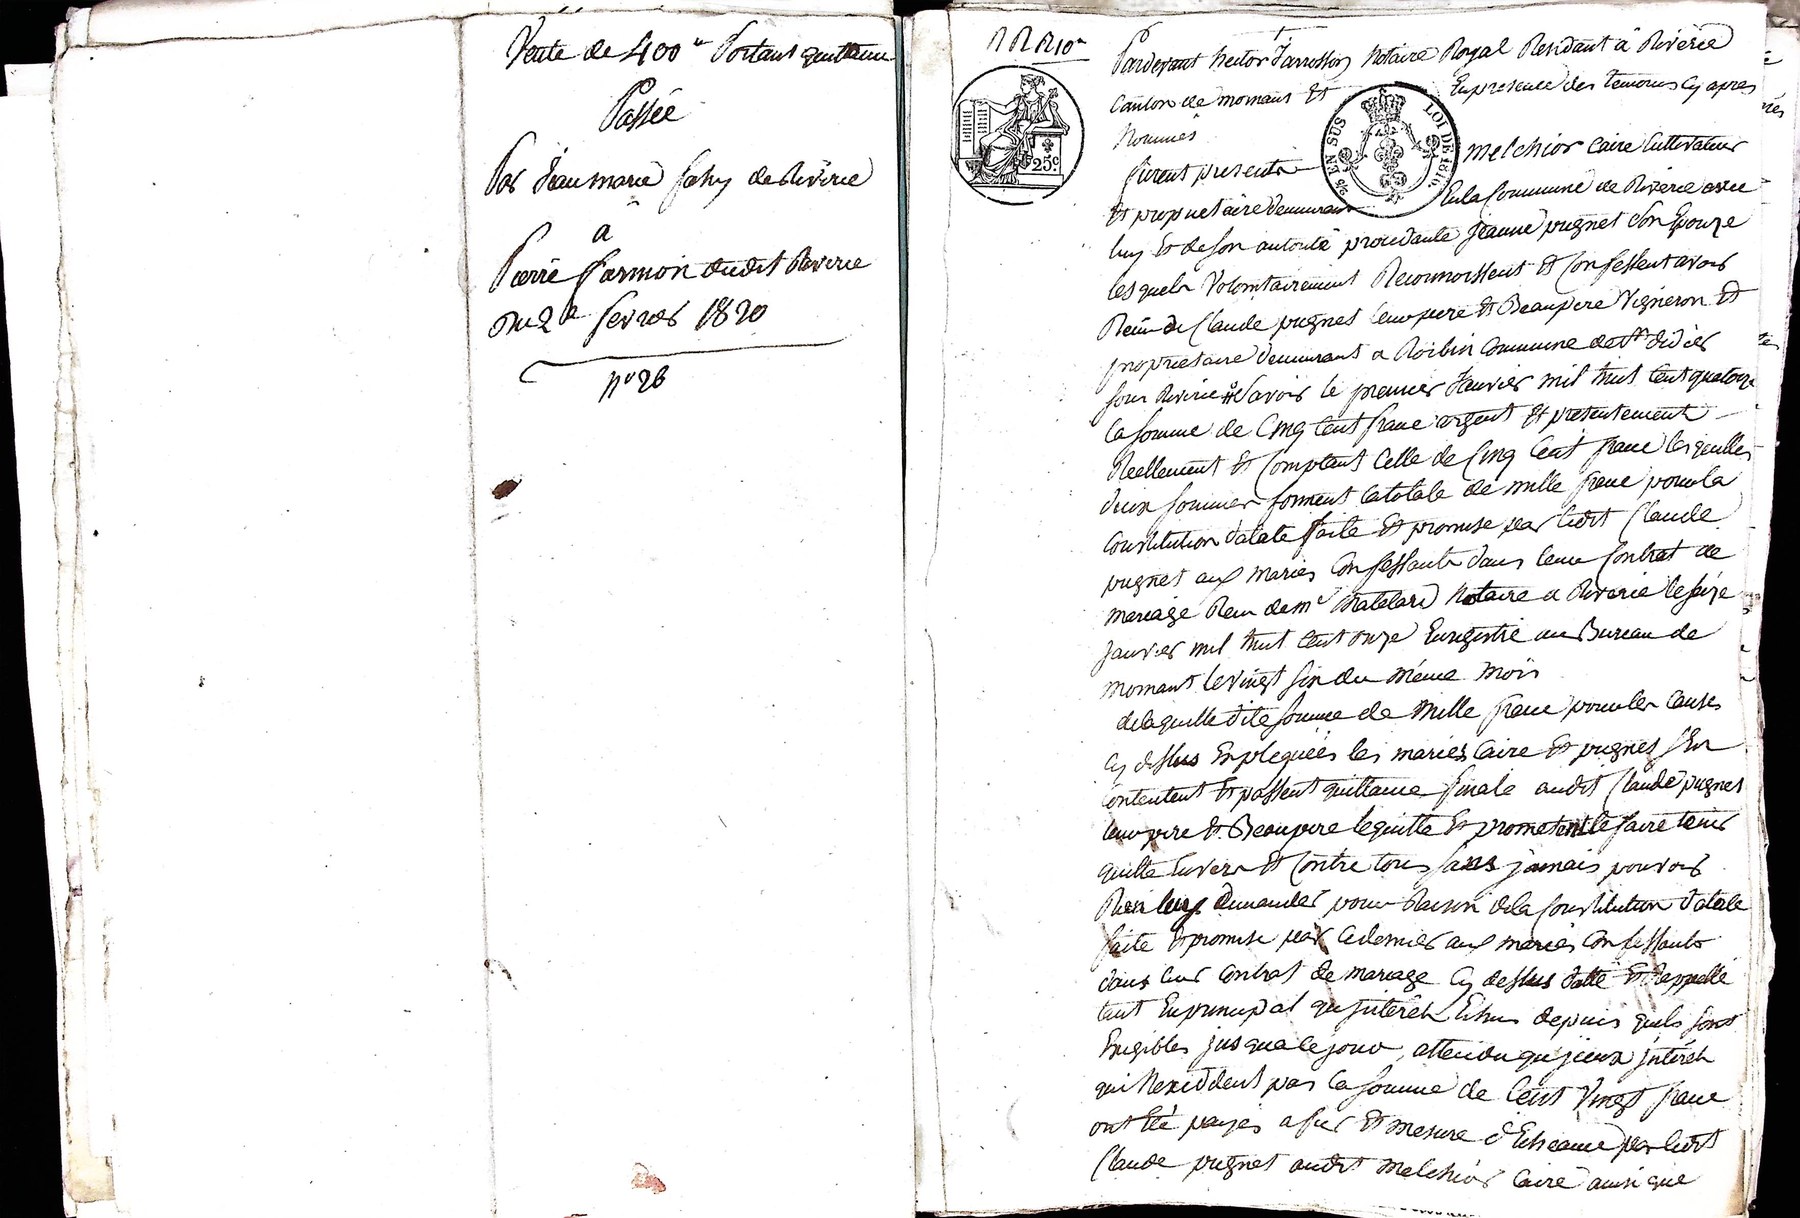 Vente de 400 # Portant quittance
Passée
Par Jean marie fahy de Riverie
a
Pierre farmon dudit Riverie
Du 2 e fevrier 1820
n° 26
R R R 10 e
25 c.
25 EN SUS LOI DE 1816.
Pardevant hector Jarrosson Notaire Royal Residant à Riverie
Canton de mornant Et En presence des temoins Cy apres
Nommés
furent presents melchior Caire Cultivateur
Et proprietaire demeurant En la Commune de Riverie avec
luy Et de son autorité procedante jeanne pugnet son Epouze
lesquels Volontairement Reconnoissent Et Confessent avoir
Recu de Claude pugnet leur pere Et Beaupere Vigneron Et
proprietaire demeurant a Roibin Commune de st didier
sous Riverie Savoir le premier Janvier mil huit Cent quatorze
la somme de Cinq Cent franc argent Et presentement
Reellement Et Comptant Celle de Cinq Cent franc lesquelles
deux sommes forment la totale de mille franc pour la
Constitution dotale faite Et promise par ledit Claude
pugnet aux mariés Confessants dans leur Contrat de
mariage Recu de me Chatelard Notaire a Riverie le seize
janvier mil huit Cent onze Enregistré au Bureau de
mornant le vingt six du même mois
de laquelle dite somme de mille franc pour les Causes
Cy dessus Expliquées les mariés Caire Et pugnet s'En
Contentent Et passent quittance finale audit Claude pugnet
leur pere Et Beaupere le quitte Et prometent le faire tenir
quitte Envers Et Contre tous sans jamais pouvoir
Rien luy demander pour Raison de la Constitution dotale
faite Et promise par Cedernier aux mariés Confessants
dans leur Contrat de mariage Cy dessus datté Et Rappellé
tant En principal qu'jnterêts Echus depuis quels sont
Exigibles jusqua Ce jour, attendu qu'jceux jnterêts
qui N'excedent pas la somme de Cent Vingt franc
ont Eté payés a fur Et mesure d'Echeance par ledit
Claude pugnet audit melchior Caire ainsi que